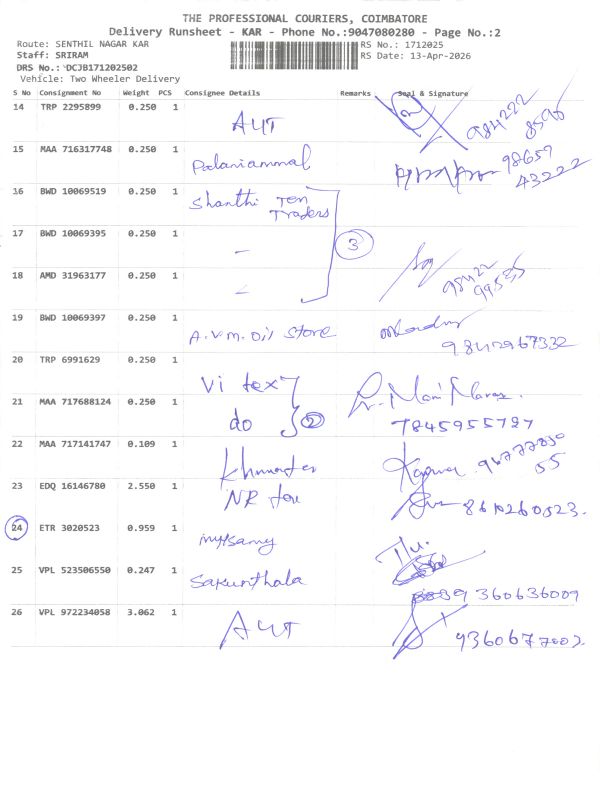 THE PROFESSIONAL COURIERS, COIMBATORE
Delivery Runsheet - KAR - Phone No.:9047080280 - Page No.:2
Route: SENTHIL NAGAR KAR RS No.: 1712025
Staff: SRIRAM RS Date: 13-Apr-2026
DRS No.: DCJB171202502
Vehicle: Two Wheeler Delivery
S No Consignment No Weight PCS Consignee Details Remarks Seal & Signature
14 TRP 2295899 0.250 1 984222 8596
15 MAA 716317748 0.250 1 Palaniammal 98657 43222
16 BWD 10069519 0.250 1 Shanthi Ten Traders
17 BWD 10069395 0.250 1 - 3
18 AMD 31963177 0.250 1 - 98422 99535
19 BWD 10069397 0.250 1 A.V.M. Oil Store 9842967332
20 TRP 6991629 0.250 1 Vi tex
21 MAA 717688124 0.250 1 do 2 7845955797
22 MAA 717141747 0.109 1
23 EDQ 16146780 2.550 1 NR 8610260523.
24 ETR 3020523 0.959 1
25 VPL 523506550 0.247 1 Sakunthala 9360636009
26 VPL 972234058 3.062 1 9360677002